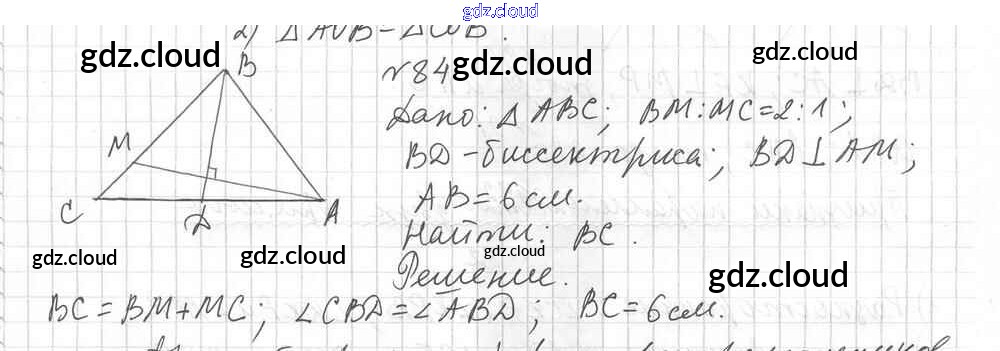 gdz.cloud
2) △AOB=△COB.
gdz.cloud
B
№84
gdz.cloud
gdz.cloud
Дано: △ABC; BM:MC=2:1;
M
BD-биссектриса; BD⊥AM;
C D A
AB=6см.
Найти: BC.
gdz.cloud
gdz.cloud
gdz.cloud
Решение.
gdz.cloud
BC=BM+MC; ∠CBD=∠ABD; BC=6см.